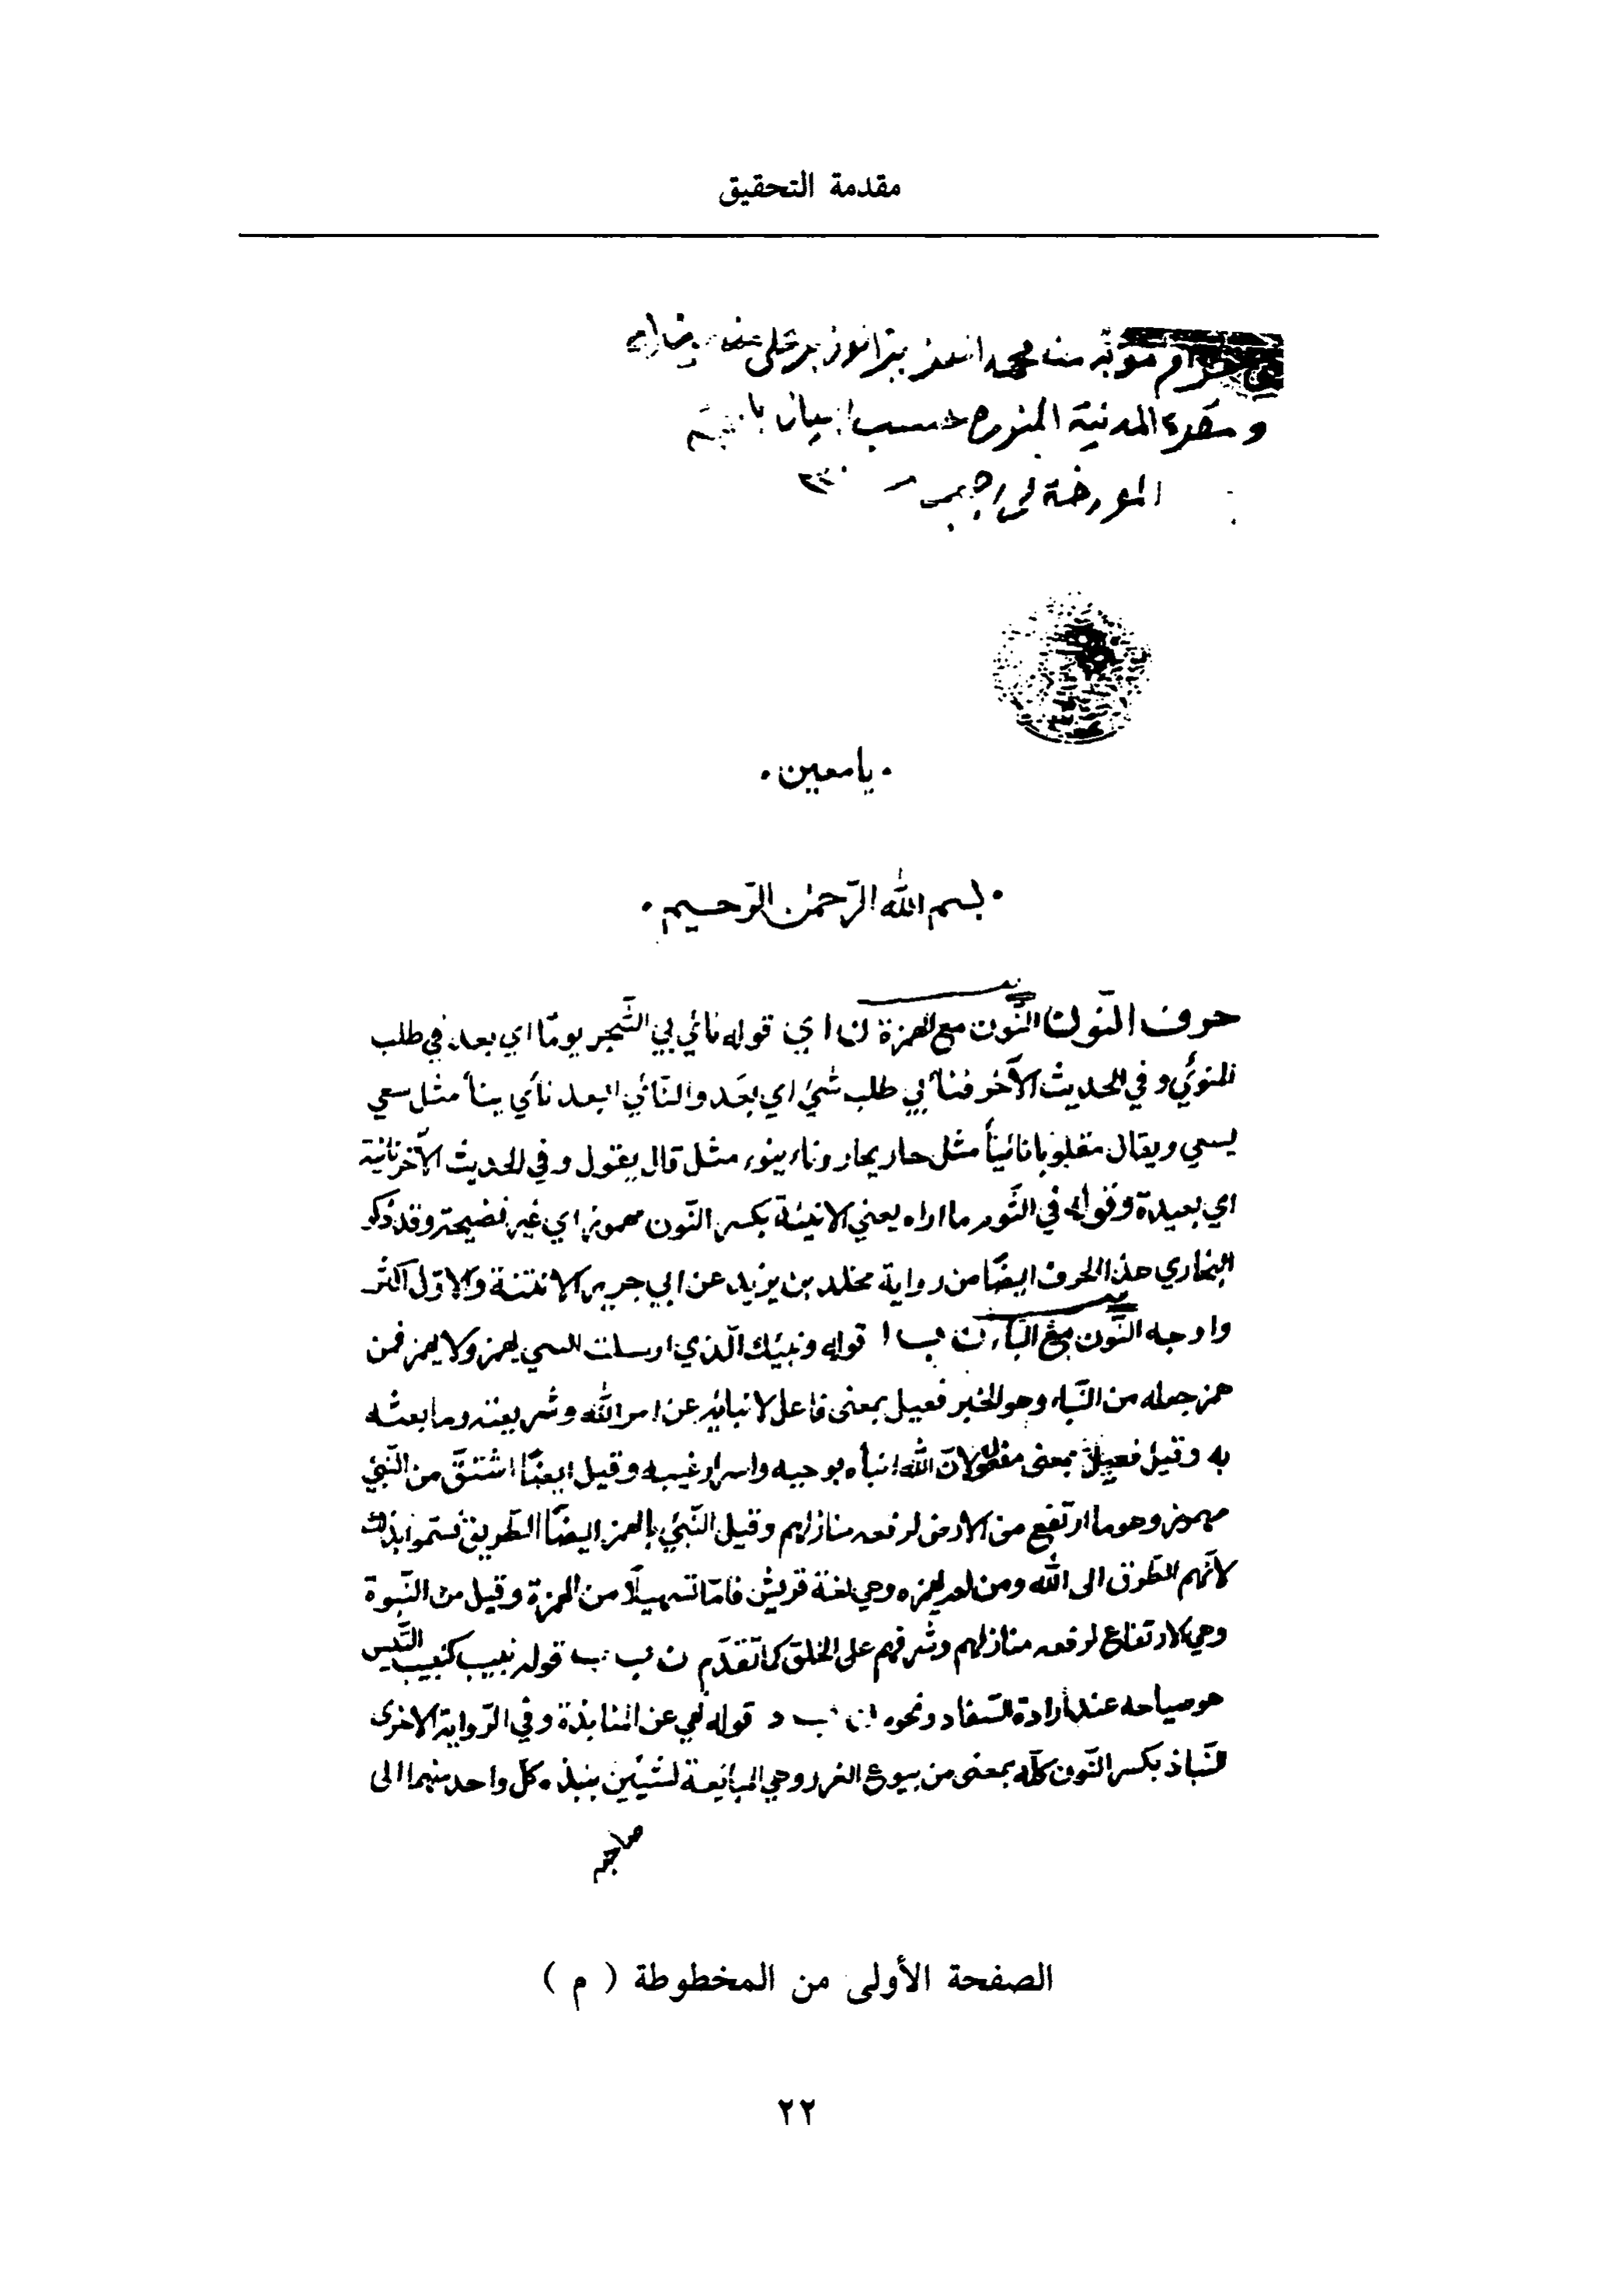 مقدمة التحقيق
و المدينة المنورة حسب
المورخة في رجب
يا معين
بسم الله الرّحمن الرّحيم
حرف النّون النّون مع الهمزة ن ا ي قوله نائي بي الشّجر يومًا اي بعد في طلب
المرعي وفي الحديث الآخر فنأ بي طلب شئ اي بعَد والنّائي البعد نأي ينأ مثل سعي
يسعي ويقال مقلوبا نائينأ مثل حار يحار وناء ينوء مثل قال يقول وفي الحديث الآخر نائية
اي بعيدة وقوله في الثّوم ما اراه يعني الا نيئة بكسر النّون مهموز اي غير نضيجة وقد ذكر
البخاري هذا الحرف ايضًا من رواية مخلد بن يزيد عن ابي جريج الا نتنة والاوّل اكثر
واوجه النّون مع الباء ن ب ا قوله ونبيّك الّذي ارسلت النبي يهمز ولا يهمز فمن
همز جعله من النّباء وهو الخبر فعيل بمعنى فاعل لانبائه عن امر الله وشريعته وما بعثه
به وقيل فعيل بمعنى مفعول لانّ الله انبأه بوحيه واسرار غيبه وقيل ايضًا اشتقّ من النّبئ
مهموز وهو ما ارتفع من الارض لرفعه منازلهم وقيل النّبئ بالهمز ايضًا الطّريق فسّموا بذلك
لانّهم الطّرق الى الله ومن لم يهمزه وهي لغة قريش فامّا تسهيلاً من الهمزة وقيل من النّبوة
وهي الارتفاع لرفعه منازلهم وشرفهم على الخلق كما تقدّم ن ب ب قوله نبيب كنبيب التّيس
هو صياحه عند ارادة السّفاد ونحوه ن ب ذ قوله نهي عن المنابذة وفي الرّواية الاخرى
النّباذ بكسر النّون كلّه بمعنى من بيوع الغرر وهي المبايعة لشيئين ينبذه كل واحد منهما الى
صاحبه
الصفحة الأولى من المخطوطة ( م )
٢٢